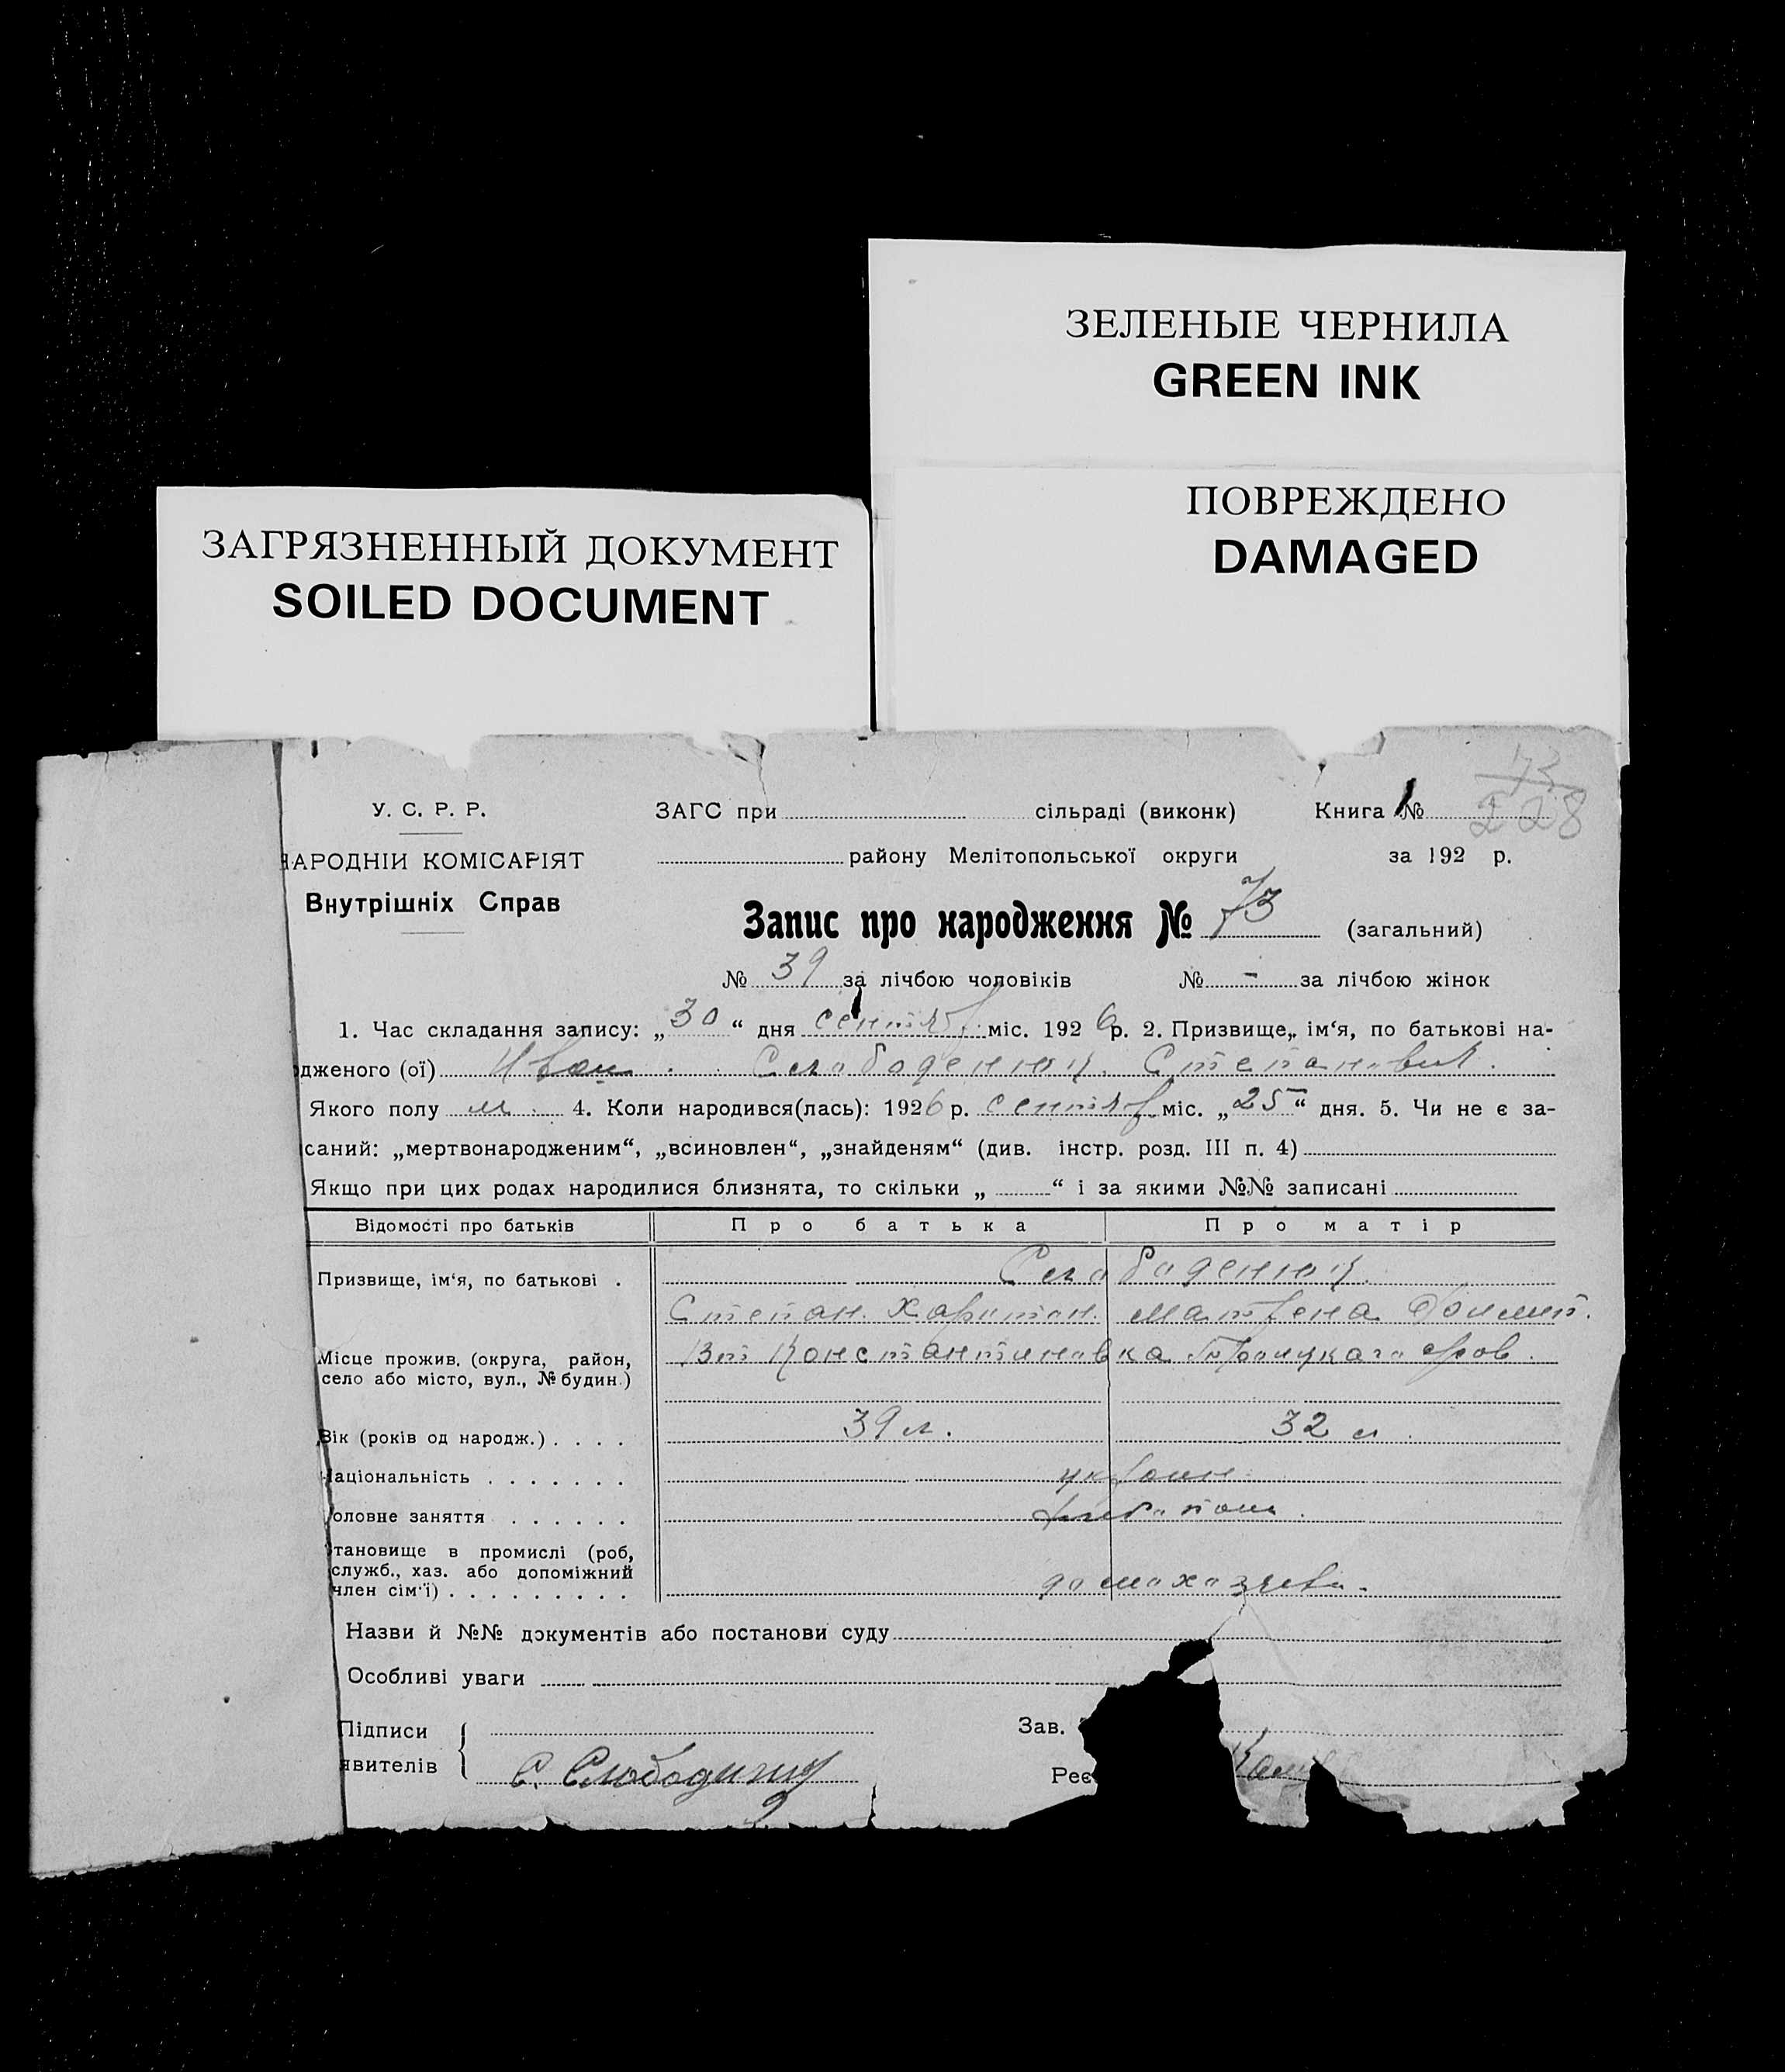 ЗЕЛЕНЫЕ ЧЕРНИЛА
GREEN INK
ПОВРЕЖДЕНО
DAMAGED
ЗАГРЯЗНЕННЫЙ ДОКУМЕНТ
SOILED DOCUMENT
73
228
У. С. Р. Р. ЗАГС при сільраді (виконк) Книга №
НАРОДНІИ КОМІСАРІЯТ району Мелітопольської округи за 192 р.
Внутрішніх Справ
Запис про народження № 73 (загальний)
№ 39 за лічбою чоловіків № - за лічбою жінок
1. Час складання запису: „30“ дня сентяб міс. 1926 р. 2. Призвище„ ім‘я, по батькові на-
дженого (ої) Иван Слабоденюк Степанович.
Якого полу м 4. Коли народився(лась): 1926 р. сентяб міс. „25“ дня. 5. Чи не є за-
саний: „мертвонародженим“, „всиновлен“, „знайденям“ (див. інстр. розд. III п. 4)
Якщо при цих родах народилися близнята, то скільки „ “ і за якими №№ записані
Відомості про батьків Про батька Про матір
Призвище, ім‘я, по батькові . Слабоденюк
Степан. Харитон. Матрена
Місце прожив. (округа, район, Константиновка
село або місто, вул., № будин.)
Вік (років од народж.) . . . . 39 л. 32 л
Національність . . . . . . . украин
Головне заняття . . . . . .
становище в промислі (роб,
служб., хаз. або допоміжний
член сім‘ї) . . . . . . . . . домохозяева.
Назви й №№ документів або постанови суду
Особливі уваги
Підписи Зав.
явителів С. Слободинюк Реє